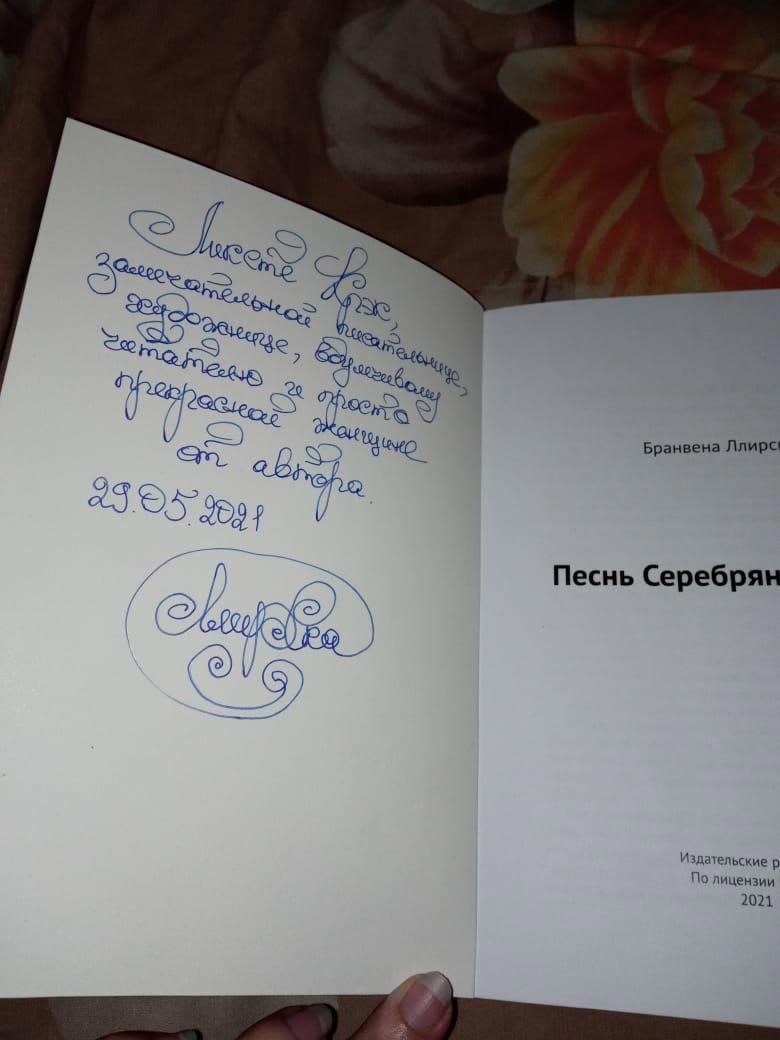 Лисете Фрэж,
замечательной писательнице,
художнице, вдумчивому
читателю и просто
прекрасной женщине
от автора.
29.05.2021
Бранвена Ллирс
Песнь Серебрян
Издательские р
По лицензии
2021